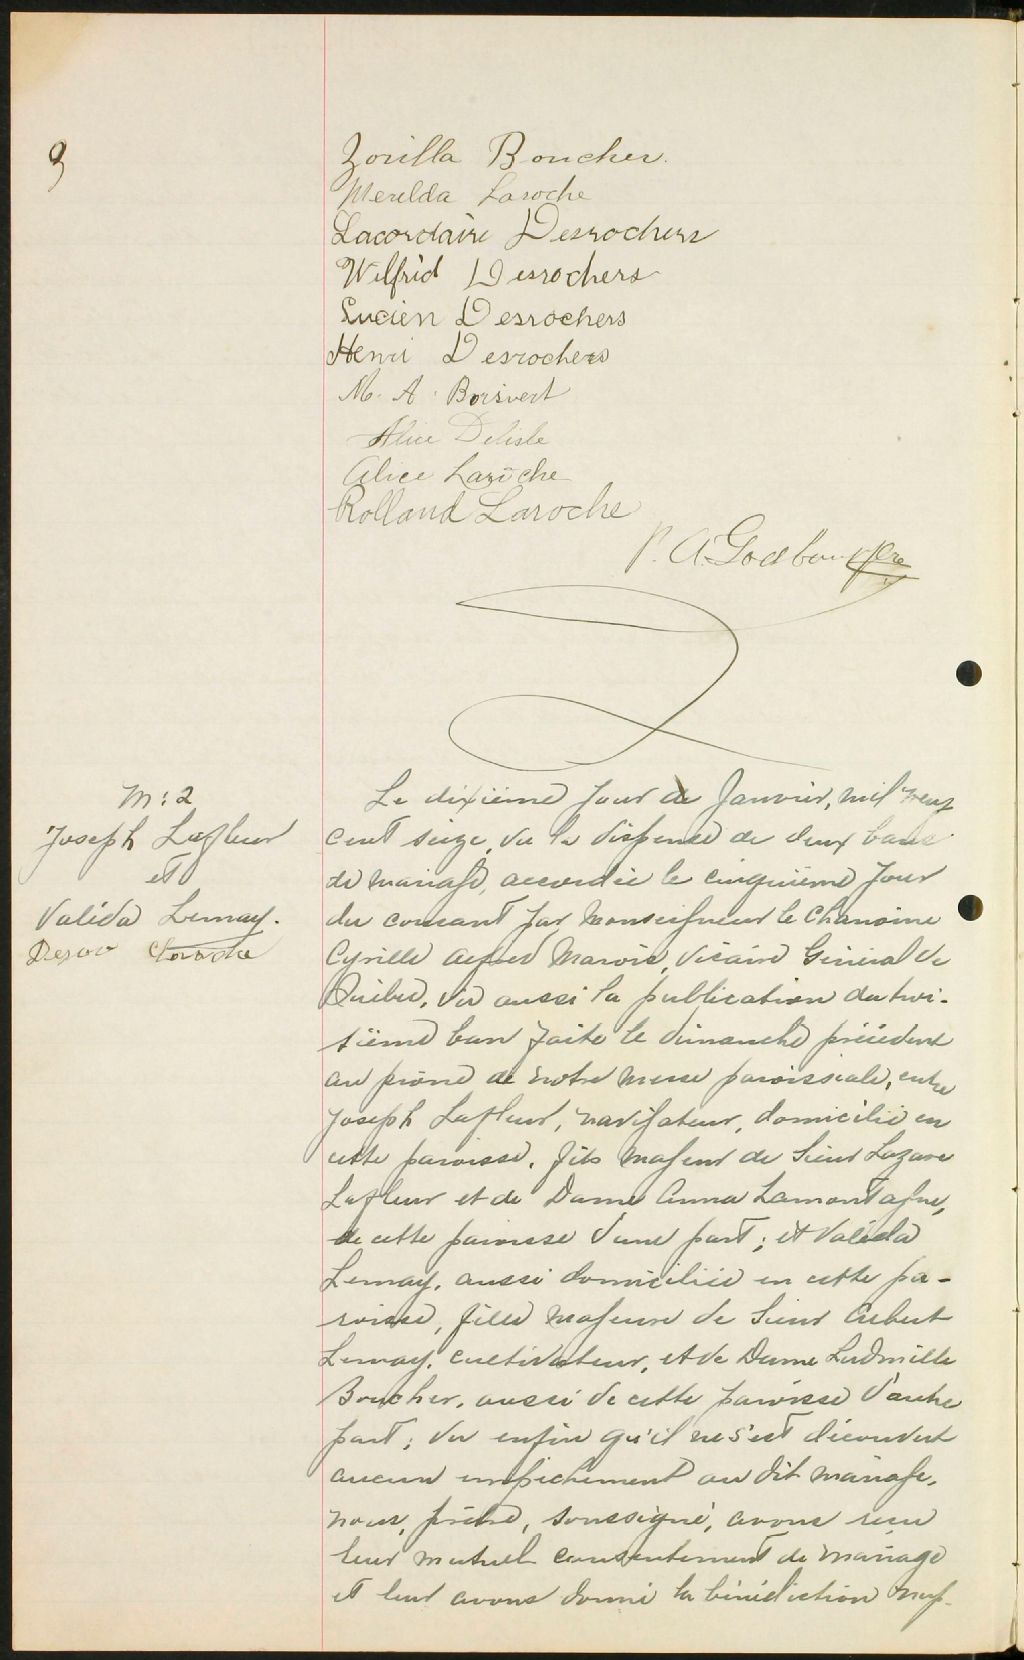 Zorilla Boucher.
Merelda Laroche
Lacordaire Desrochers
Wilfrid Desrochers
Lucien Desrochers
Henri Desrochers
M. A. Boisvert
Alice Delisle
Alice Laroche
Rolland Laroche
P. A. Godbout, Ptre
M: 2
Joseph Lafleur
et
Valéda Lemay.
Le dixième jour de Janvier, mil neuf
cent seize, vu la dispense de deux bans
de mariage, accordée le cinquième jour
du courant par Monseigneur le Chanoine
Cyrille Alfred Marois, Vicaire Général de
Québec, vu aussi la publication du troi-
sième ban faite le dimanche précédent
au prône de notre messe paroissiale, entre
Joseph Lafleur, navigateur, domicilié en
cette paroisse, fils majeur de Sieur Lazare
Lafleur et de Dame Anna Lamontagne,
de cette paroisse d'une part; et Valéda
Lemay, aussi domiciliée en cette pa-
roisse, fille majeure de Sieur
Lemay, cultivateur, et de Dame Ludmille
Boucher, aussi de cette paroisse d'autre
part; vu enfin qu'il ne s'est découvert
aucun empêchement au dit mariage,
nous, prêtre, soussigné, avons reçu
leur mutuel consentement de mariage
et leur avons donné la bénédiction nup-